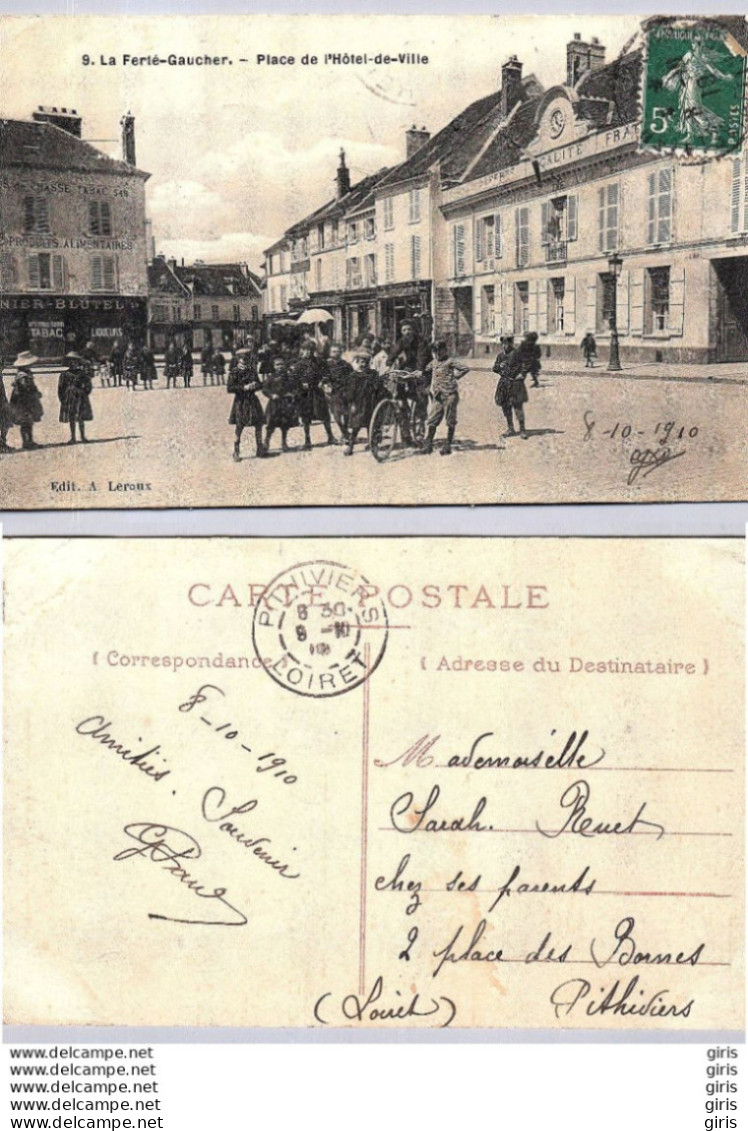 9. La Ferté-Gaucher. - Place de l'Hôtel-de-Ville
5c
CHASSE TABAC
PRODUITS ALIMENTAIRES
NIER-BLUTEL
TABAC
LIQUEURS
8-10-1910
Edit. A. Leroux
CARTE POSTALE
PITHIVIERS
8 30
9 -10
10
LOIRET
( Correspondance )
( Adresse du Destinataire )
8-10-1910
Amitiés. Souvenir
Mademoiselle
Sarah. Ruet
chez ses parents
2 place des Bornes
Pithiviers
(Loiret)
www.delcampe.net giris
www.delcampe.net giris
www.delcampe.net giris
www.delcampe.net giris
www.delcampe.net giris